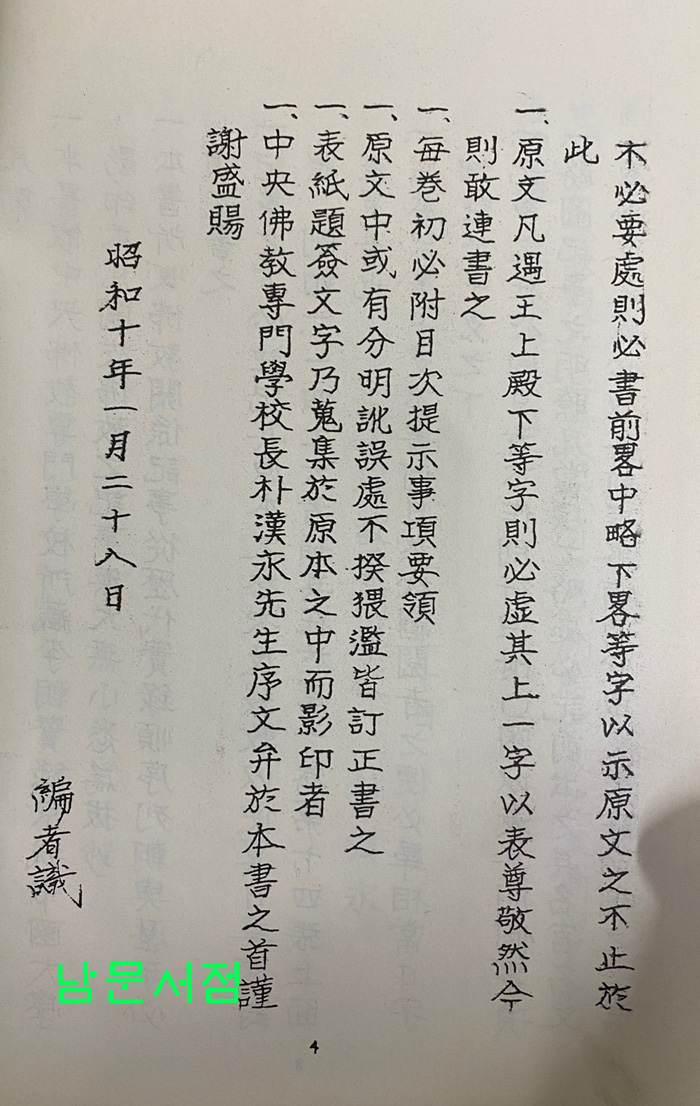 不必要處則必書前畧中略下畧等字以示原文之不止於
此
一、原文凡遇王上殿下等字則必虛其上一字以表尊敬然今
則敢連書之
一、每卷初必附目次提示事項要領
一、原文中或有分明訛誤處不揆猥濫皆訂正書之
一、表紙題簽文字乃蒐集於原本之中而影印者
一、中央佛教專門學校長朴漢永先生序文弁於本書之首謹
謝盛賜
昭和十年一月二十八日
編者識
남문서점
4